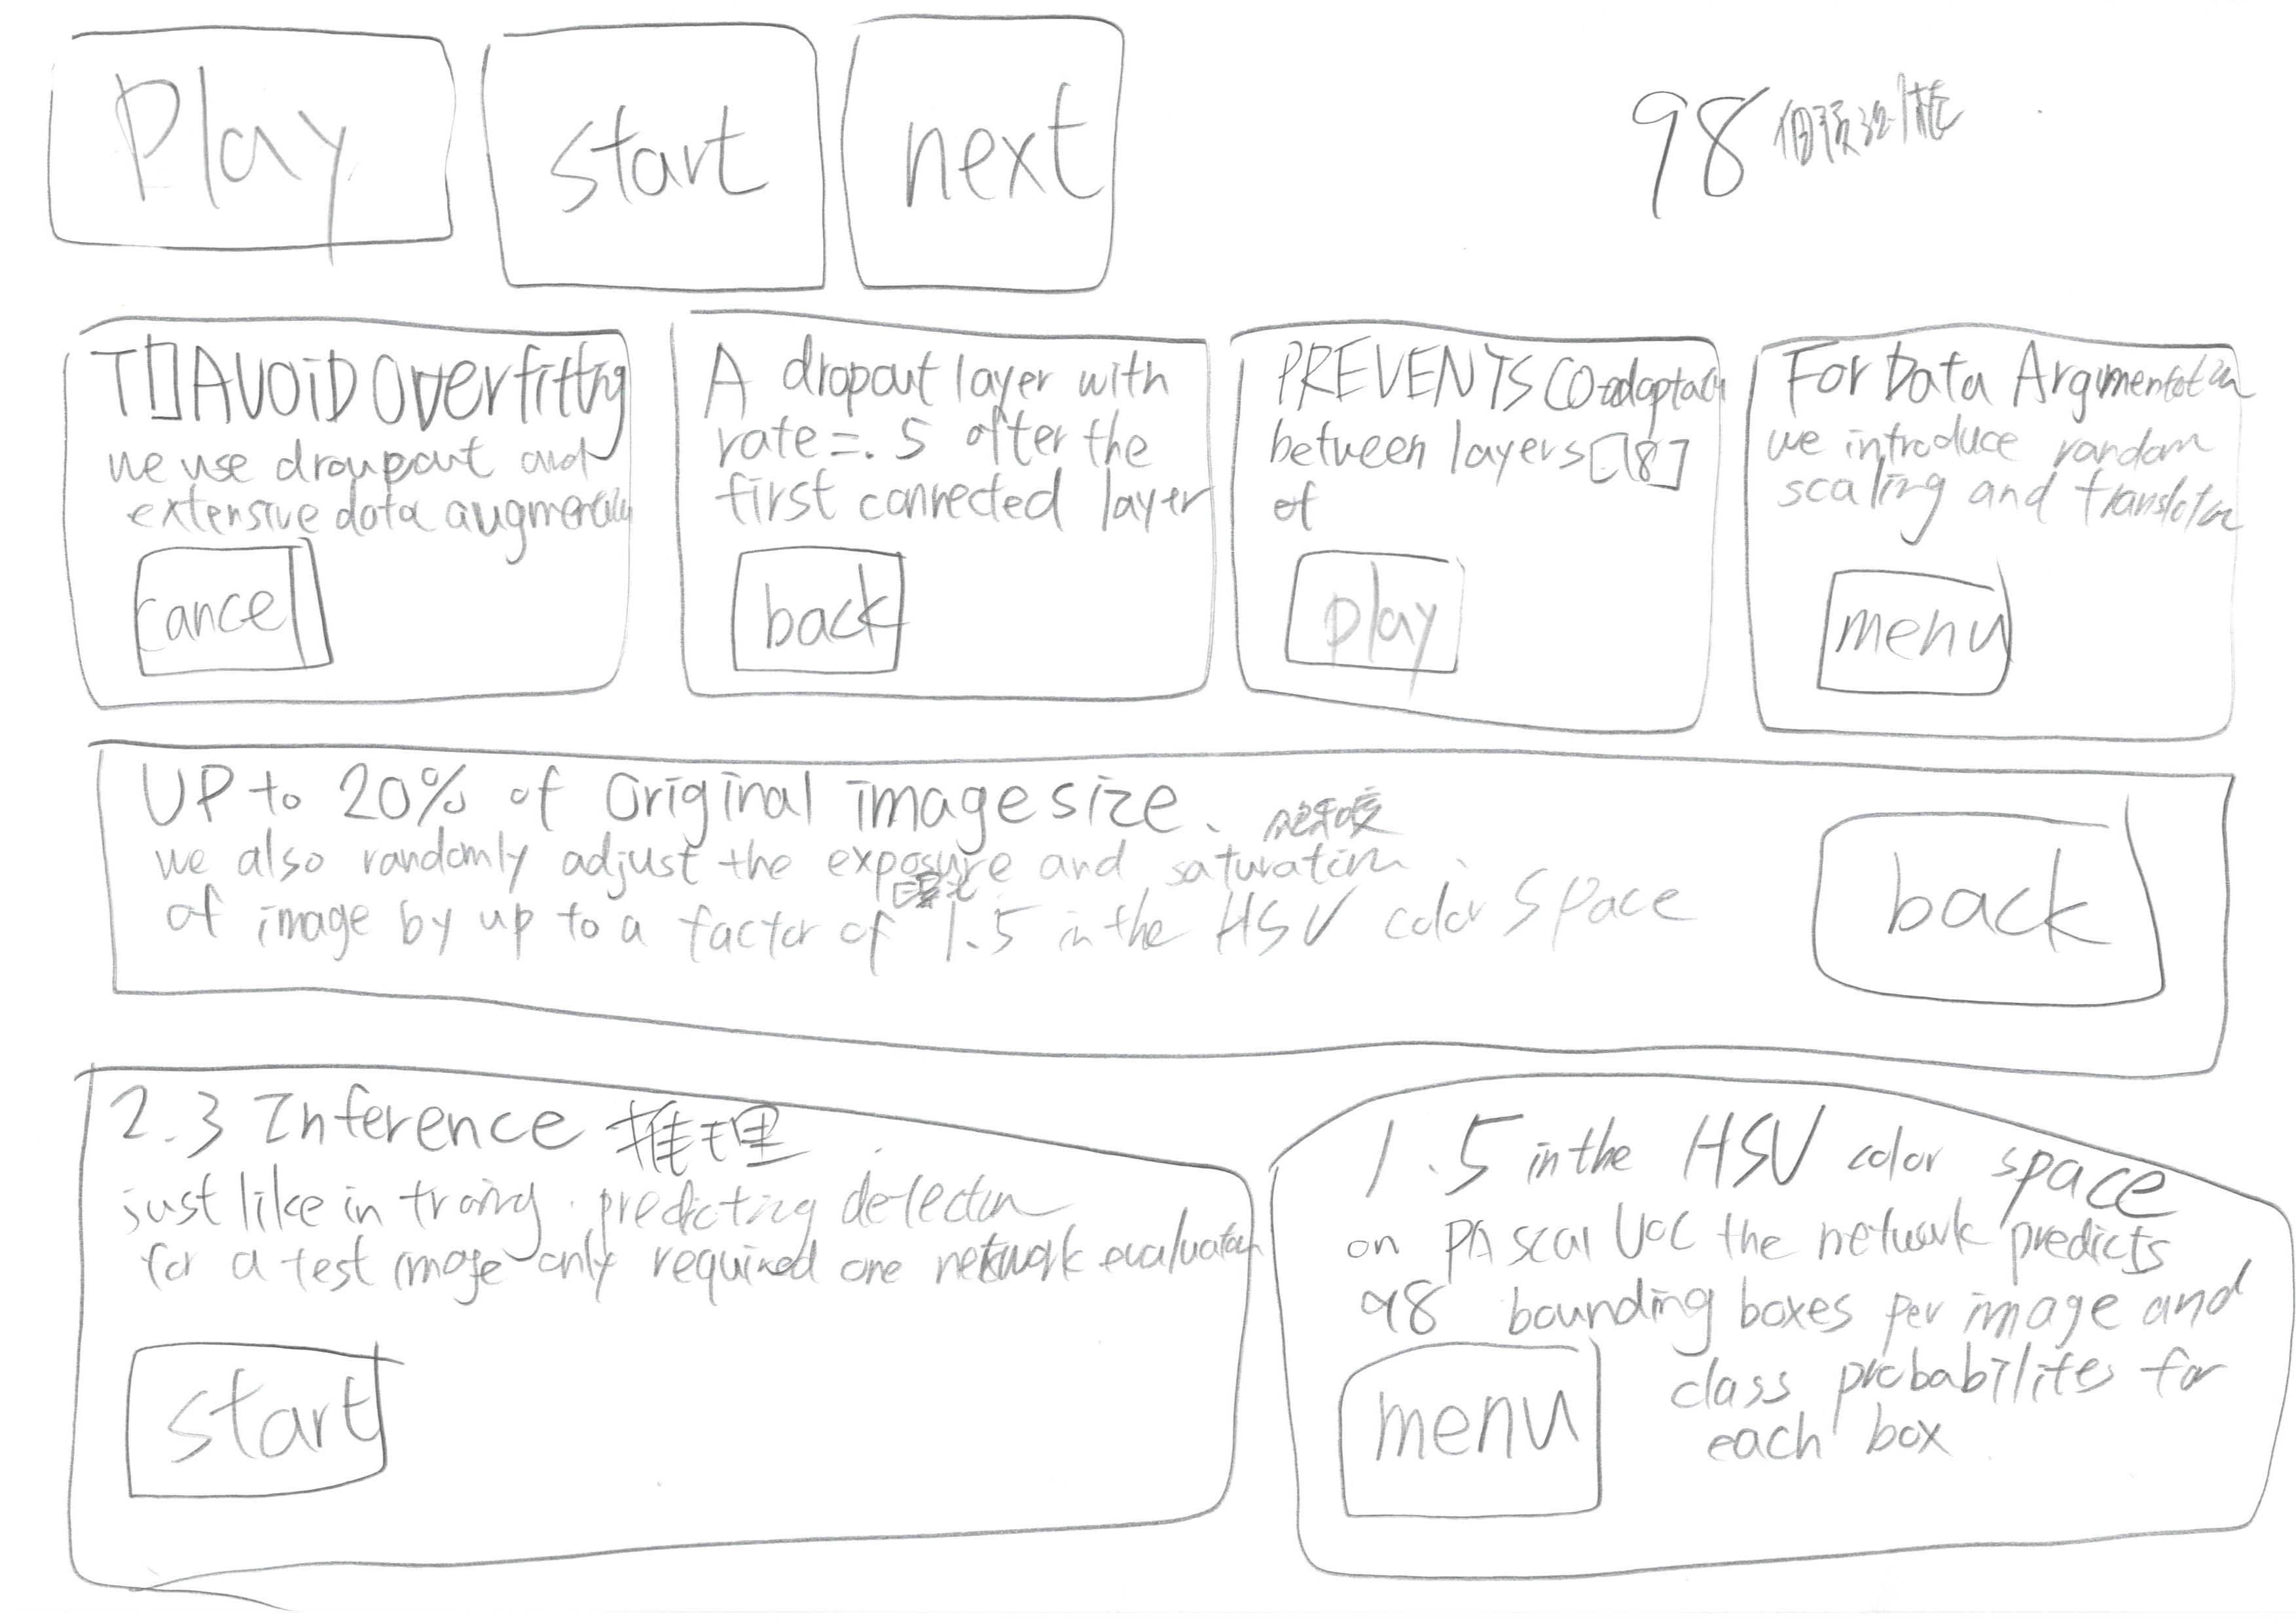 Play
start
next
98 個預測框
TO AVOiD Overfitting
we use droupout and
extensive data augmentation
cancel
A dropout layer with
rate=.5 after the
first connected layer
back
PREVENTS Co-adaptation
between layers [18]
of
play
For Data Argmentation
we introduce random
scaling and translation
menu
UP to 20% of Original image size.
飽和度
we also randomly adjust the exposure and saturation
曝光
of image by up to a factor of 1.5 in the HSV color Space
back
2.3 Inference 推理
just like in traing. predicting detection
for a test image only required one network evaluation
start
1.5 in the HSV color space
on PAscal VOC the network predicts
98 bounding boxes per image and
class probabilites for
each box
menu